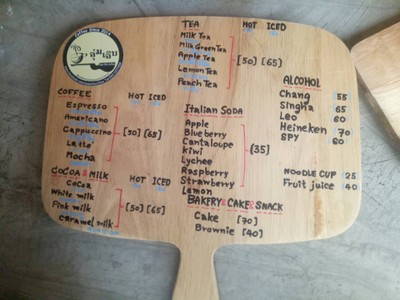 COFFEE HOT ICED
Espresso
Americano
Cappuccino [50] [65]
Latte'
Mocha
COCOA & MILK HOT ICED
Cocoa
White milk
Pink milk [50] [65]
Caramel milk
TEA HOT ICED
Milk Tea
Milk Green Tea
Apple Tea [50] [65]
Lemon Tea
Peach Tea
Italian SODA
Apple
Blueberry
Cantaloupe
kiwi [35]
Lychee
Raspberry
Strawberry
Lemon
BAKERY & CAKE & SNACK
Cake [70]
Brownie [40]
ALCOHOL
Chang 55
Singha 65
Leo 60
Heineken 70
SPY 60
NOODLE CUP 25
Fruit juice 40